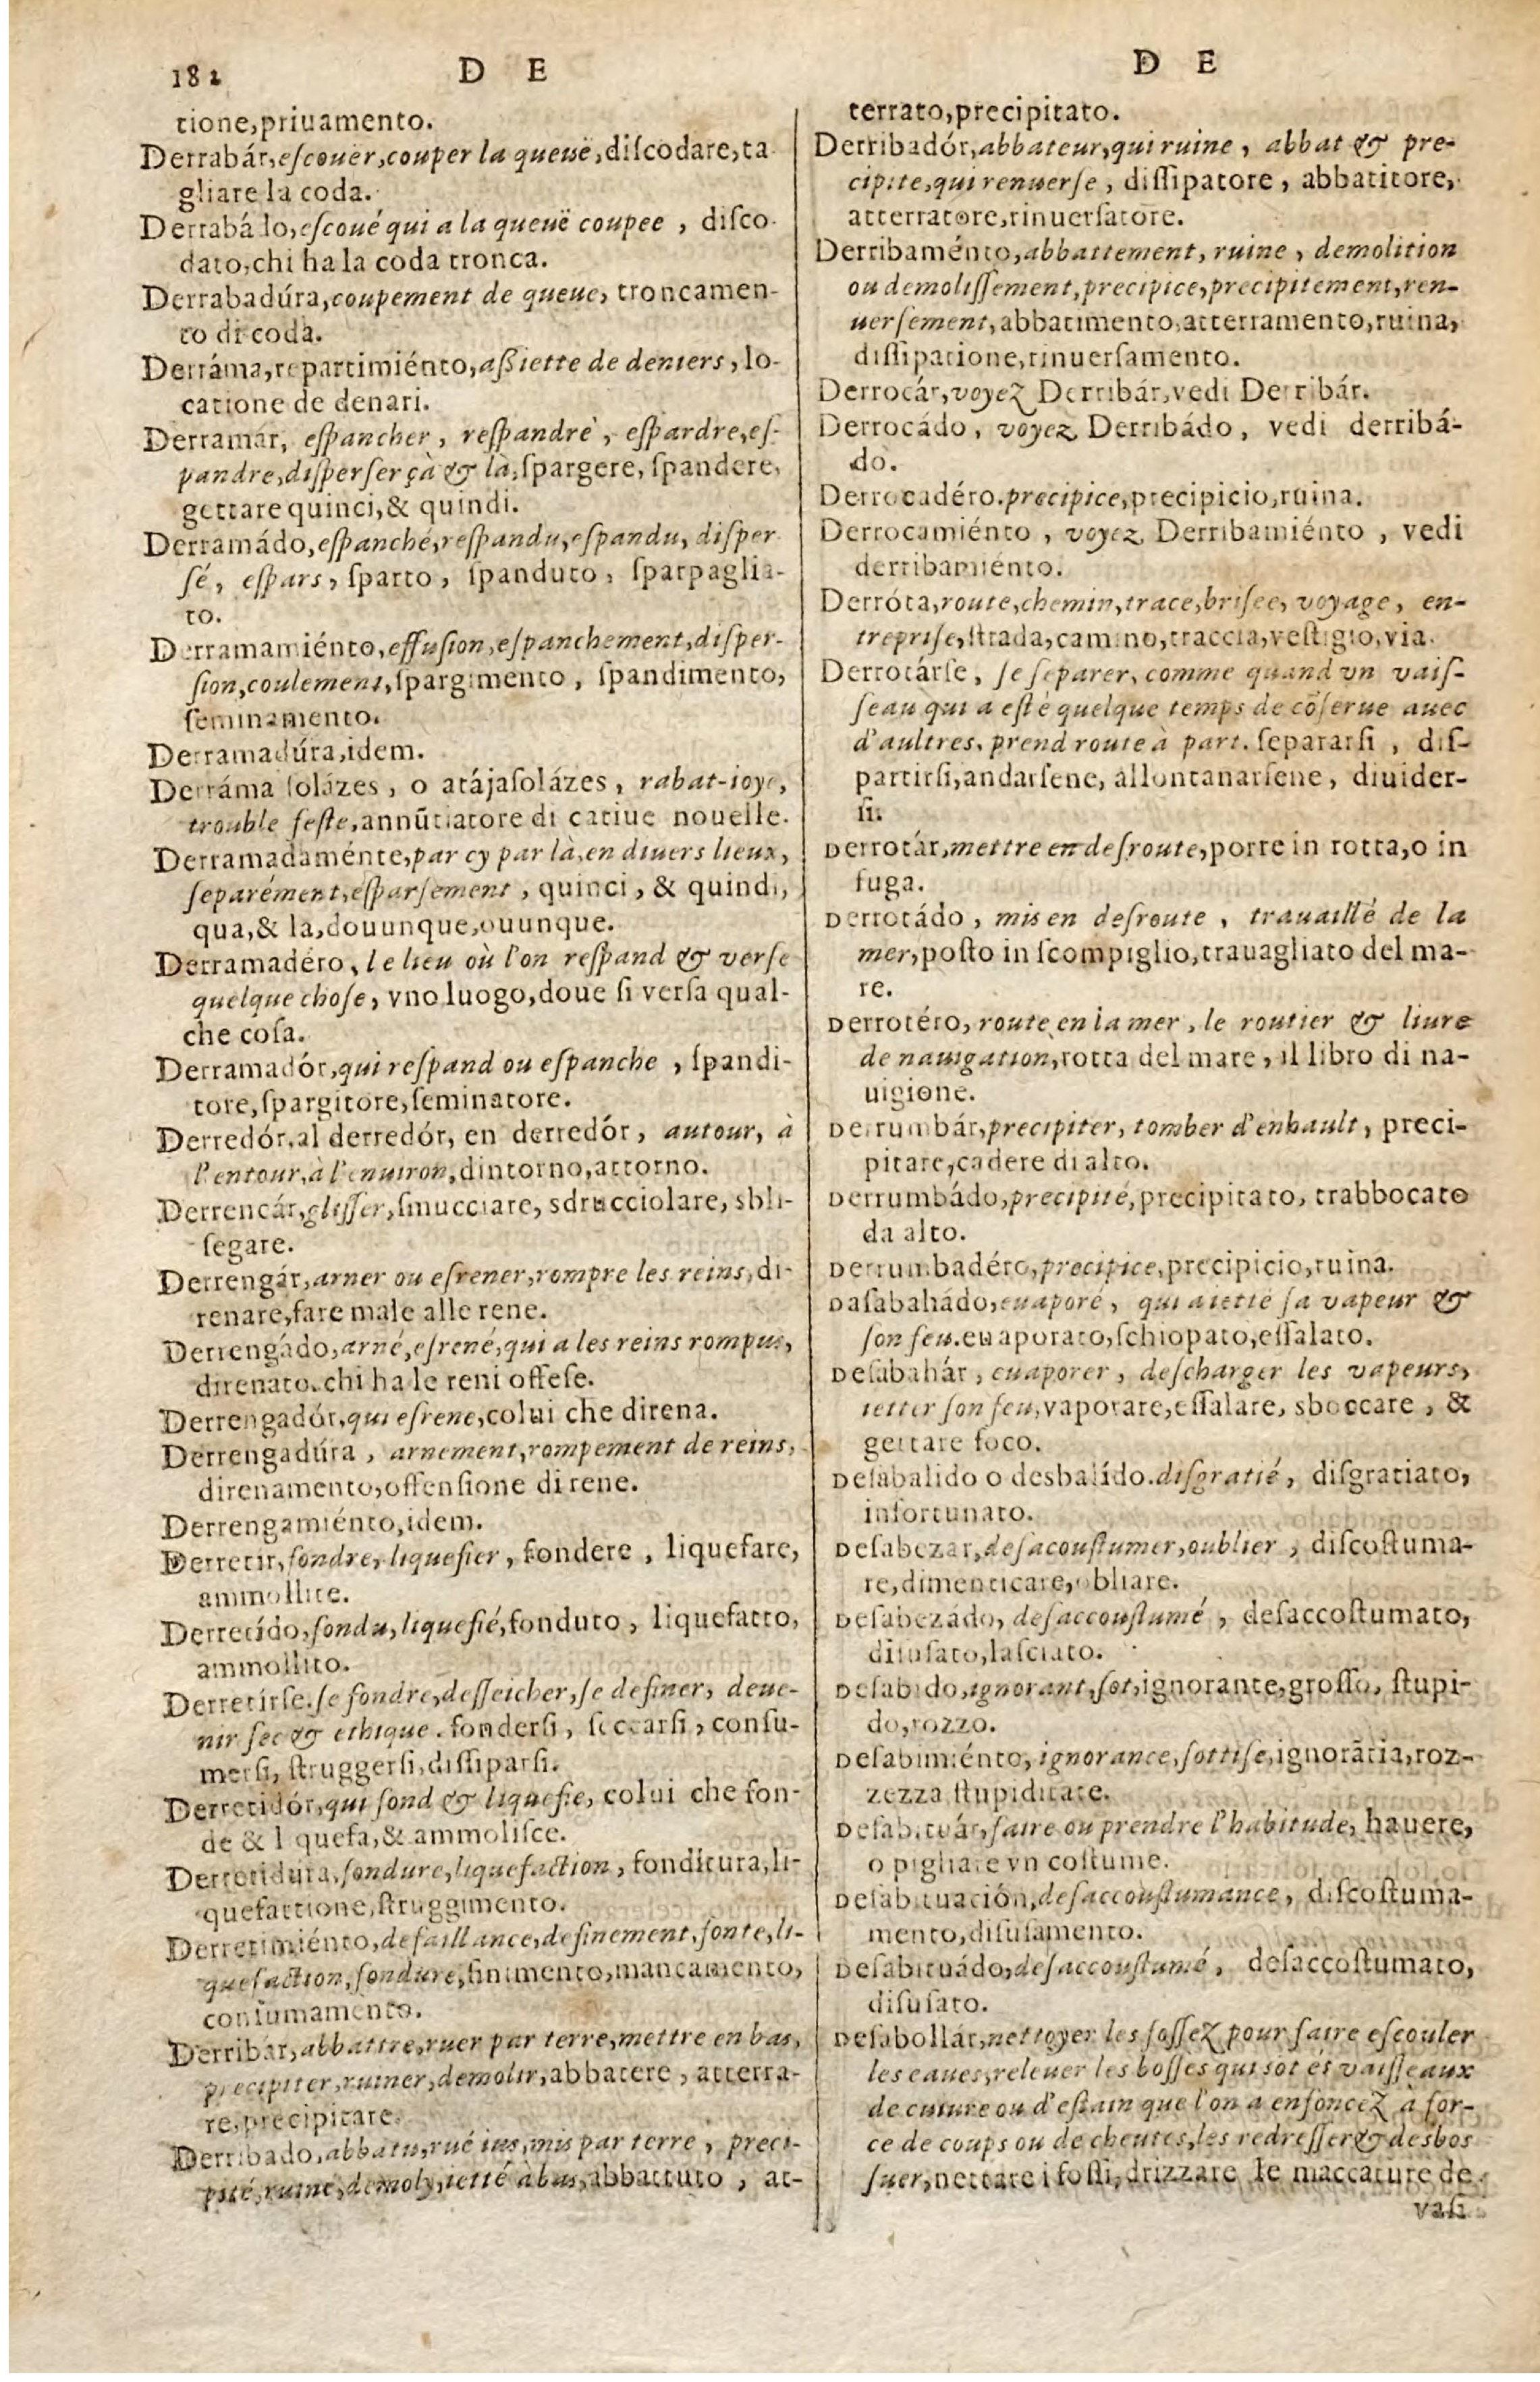 182 D E
tione,priuamento.
Derrabár,eſcouer,couper la queuë,diſcodare,ta
gliare la coda.
Derrabádo,eſcoué qui a la queuë coupee , diſco
dato,chi ha la coda tronca.
Derrabadúra,coupement de queue, troncamen-
to di coda.
Derráma,repartimiénto,aßiette de deniers, lo-
catione de denari.
Derramár, eſpancher, reſpandre, eſpardre,eſ-
pandre,diſperſer çà & là,ſpargere, ſpandere,
gettare quinci,& quindi.
Derramádo,eſpanché,reſpandu,eſpandu, diſper
ſé, eſpars, ſparto, ſpanduto, ſparpaglia-
to.
Derramamiénto,effuſion,eſpanchement,diſper-
ſion,coulement,ſpargimento, ſpandimento,
ſeminamento.
Derramadúra,idem.
Derráma ſolázes, o atájaſolázes, rabat-ioye,
trouble feſte,annūtiatore di catiue nouelle.
Derramadaménte,par cy par là,en diuers lieux,
ſeparément,eſparſement, quinci, & quindi,
qua,& la,douunque,ouunque.
Derramadéro, le lieu où l'on reſpand & verſe
quelque choſe, vno luogo,doue ſi verſa qual-
che coſa.
Derramadór,qui reſpand ou eſpanche , ſpandi-
tore,ſpargitore,ſeminatore.
Derredór,al derredór, en derredór, autour, à
l'entour,à l'enuiron,dintorno,attorno.
Derrencár,gliſſer,ſmucciare, sdrucciolare, sbli-
ſegare.
Derrengár,arner ou eſrener,rompre les reins,di-
renare,fare male alle rene.
Derrengádo,arné,eſrené,qui a les reins rompus,
direnato.chi ha le reni offeſe.
Derrengadór,qui eſrene,colui che direna.
Derrengadúra , arnement,rompement de reins,
direnamento,offenſione di rene.
Derrengamiénto,idem.
Derretir,fondre,liquefier, fondere , liquefare,
ammollire.
Derretído,fondu,liquefié,fonduto, liquefatto,
ammollito.
Derretírſe.ſe fondre,deſſeicher,ſe definer, deue-
nir ſec & ethique. fonderſi, ſeccarſi, conſu-
merſi, ſtruggerſi,diſſiparſi.
Derretidór,qui fond & liquefie, colui che fon-
de & l quefa,& ammoliſce.
Derretidura,fondure,liquefaction, fonditura,li-
quefattione,ſtruggimento.
Derretimiénto,defaillance,definement,fonte,li-
quefaction,fondure,finimento,mancamento,
conſumamento.
Derribár,abbattre,ruer par terre,mettre en bas,
precipiter,ruiner,demolir,abbatere, atterra-
re,precipitare.
Derribado,abbatu,rué ius,mis par terre, preci-
pité,ruiné,demoly,ietté à bas,abbattuto, at-
D E
terrato,precipitato.
Derribadór,abbateur,qui ruine, abbat & pre-
cipite,qui renuerſe, diſſipatore, abbatitore,
atterratore,rinuerſatore.
Derribaménto,abbattement, ruine, demolition
ou demoliſſement,precipice,precipitement,ren-
uerſement,abbatimento,atterramento,ruina,
diſſipatione,rinuerſamento.
Derrocár,voyez Derribár,vedi Derribár.
Derrocádo, voyez Derribádo, vedi derribá-
do.
Derrocadéro.precipice,precipicio,ruina.
Derrocamiénto , voyez Derribamiénto , vedi
derribamiénto.
Derróta,route,chemin,trace,briſee, voyage, en-
trepriſe,ſtrada,camino,traccia,veſtigio,via.
Derrotárſe, ſe ſeparer, comme quand vn vaiſ-
ſeau qui a eſté quelque temps de cōſerue auec
d'aultres, prend route à part. ſepararſi, diſ-
partirſi,andarſene, allontanarſene, diuider-
ſi.
Derrotár,mettre en deſroute,porre in rotta,o in
fuga.
Derrotádo, mis en deſroute, trauaillé de la
mer,poſto in ſcompiglio,trauagliato del ma-
re.
Derrotéro, route en la mer, le routier & liure
de nauigation,rotta del mare, il libro di na-
uigione.
Derrumbár,precipiter, tomber d'enhault, preci-
pitare,cadere di alto.
Derrumbádo,precipité,precipitato, trabbocato
da alto.
Derrumbadéro,precipice,precipicio,ruina.
Daſabahádo,euaporé, qui a ietté ſa vapeur &
ſon feu.euaporato,ſchiopato,eſſalato.
Deſabahár, euaporer, deſcharger les vapeurs,
ietter ſon feu,vaporare,eſſalare, sboccare, &
gettare foco.
Deſabalido o desbalído.diſgratié, diſgratiato,
infortunato.
Deſabezar,deſacouſtumer,oublier, diſcoſtuma-
re,dimenticare,obliare.
Deſabezádo, deſaccouſtumé, deſaccoſtumato,
diſuſato,laſciato.
Deſabido,ignorant,ſot,ignorante,groſſo, ſtupi-
do,rozzo.
Deſabimiénto, ignorance,ſottiſe,ignorātia,roz-
zezza ſtupiditate.
Deſabituár,faire ou prendre l'habitude, hauere,
o pigliare vn coſtume.
Deſabituación,deſaccouſtumance, diſcoſtuma-
mento,diſuſamento.
Deſabituádo,deſaccouſtumé, deſaccoſtumato,
diſuſato.
Deſabollár,nettoyer les foſſez pour faire eſcouler
les eaues,releuer les boſſes qui sōt és vaiſſeaux
de cuiure ou d'eſtain que l'on a enfoncez à for-
ce de coups ou de cheutes,les redreſſer & desbos
ſuer,nettare i foſſi,drizzare le maccature de
vaſi